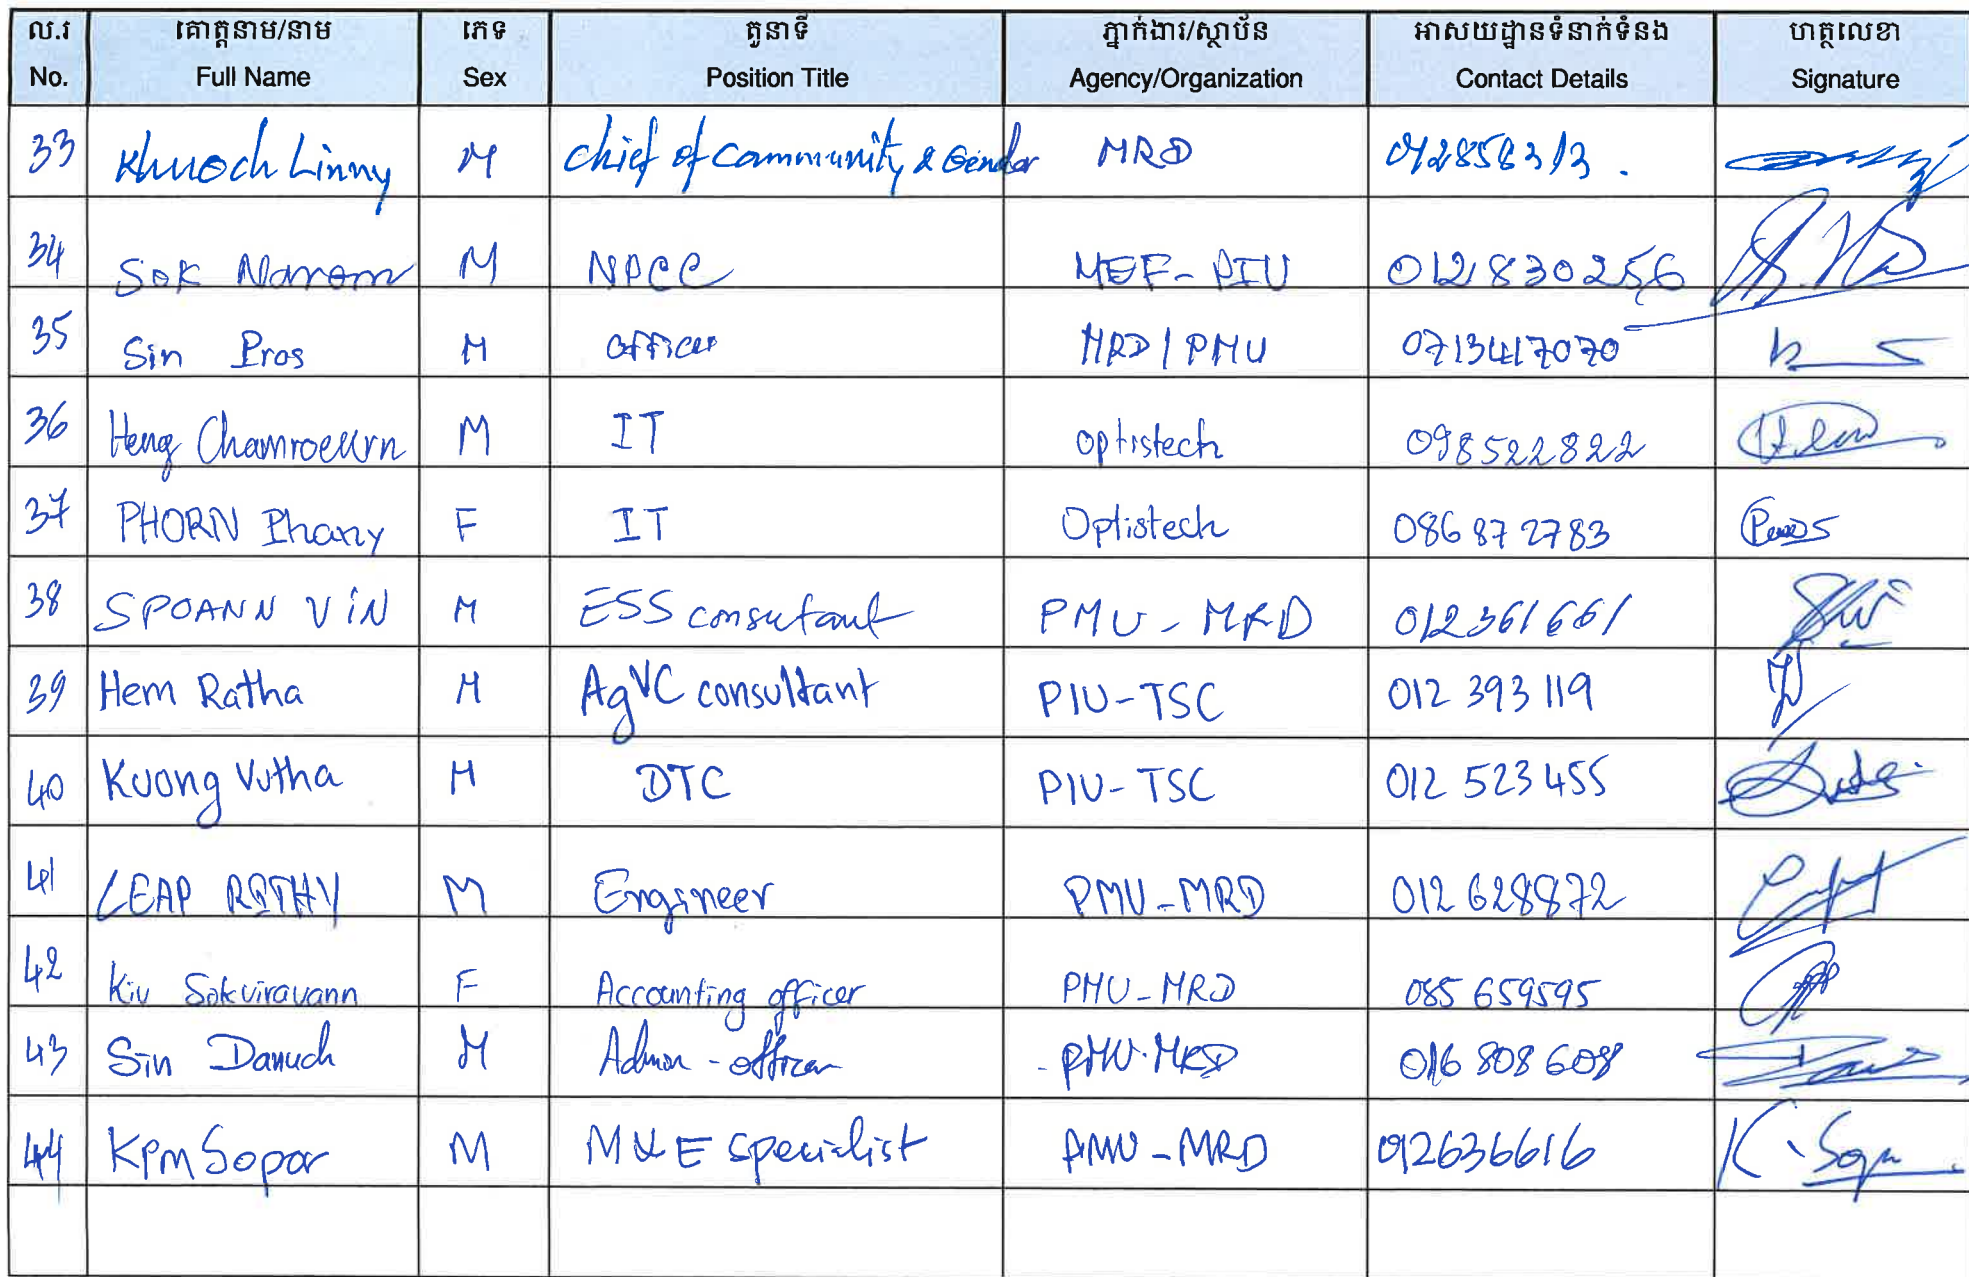 ល.រ គោត្តនាម/នាម ភេទ តួនាទី ភ្នាក់ងារ/ស្ថាប័ន អាសយដ្ឋានទំនាក់ទំនង ហត្ថលេខា
No. Full Name Sex Position Title Agency/Organization Contact Details Signature
33 Khuoch Linny M Chief of Community & Gender MRD 012858313.
34 Sok Narom M NPCC MEF-PIU 012830256
35 Sin Pros M officer MRD/PMU 0713417070
36 Heng Chamroeurn M IT optistech 098522822
37 PHORN Phany F IT Optistech 086 87 2783
38 SPOANN ViN M ESS consutant PMU-MRD 012361661
39 Hem Ratha M AgVC consultant PIU-TSC 012 393 119
40 Kuong Vutha M DTC PIU-TSC 012 523 455
41 LEAP RITHY M Engineer PMU-MRD 012 628872
42 Kiv Sokviravann F Accounting officer PMU-MRD 085 659595
43 Sin Danuch M Admin-officer PMU-MRD 016 808 608
44 Kim Sopor M M&E specialist PMU-MRD 012636616 K. Sopor